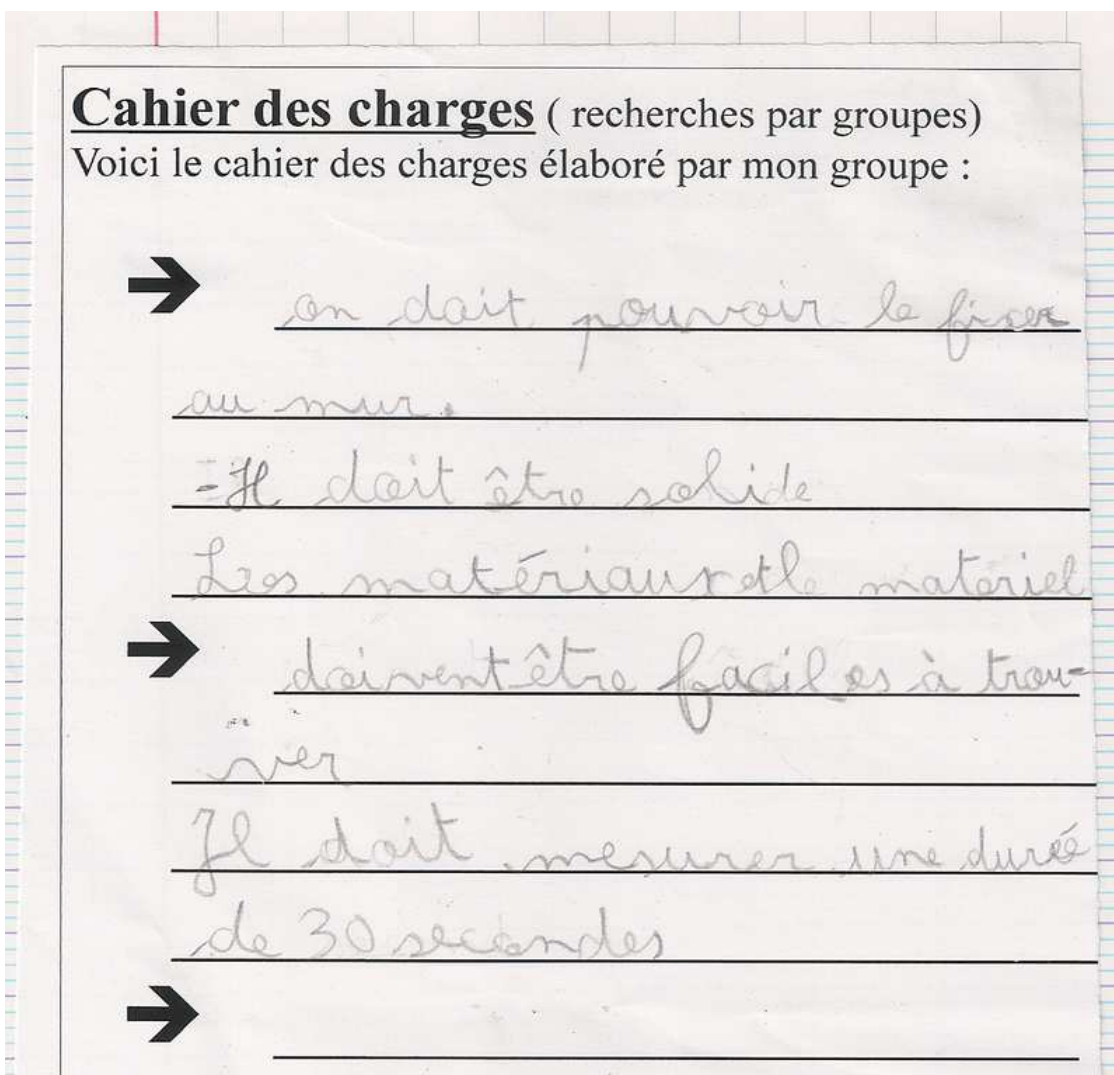 Cahier des charges ( recherches par groupes)
Voici le cahier des charges élaboré par mon groupe :
➔ on doit pouvoir le fixer
au mur.
- Il doit être solide
Les matériaux et le matériel
➔ doivent être faciles à trou-
ver
Il doit mesurer une durée
de 30 secondes
➔